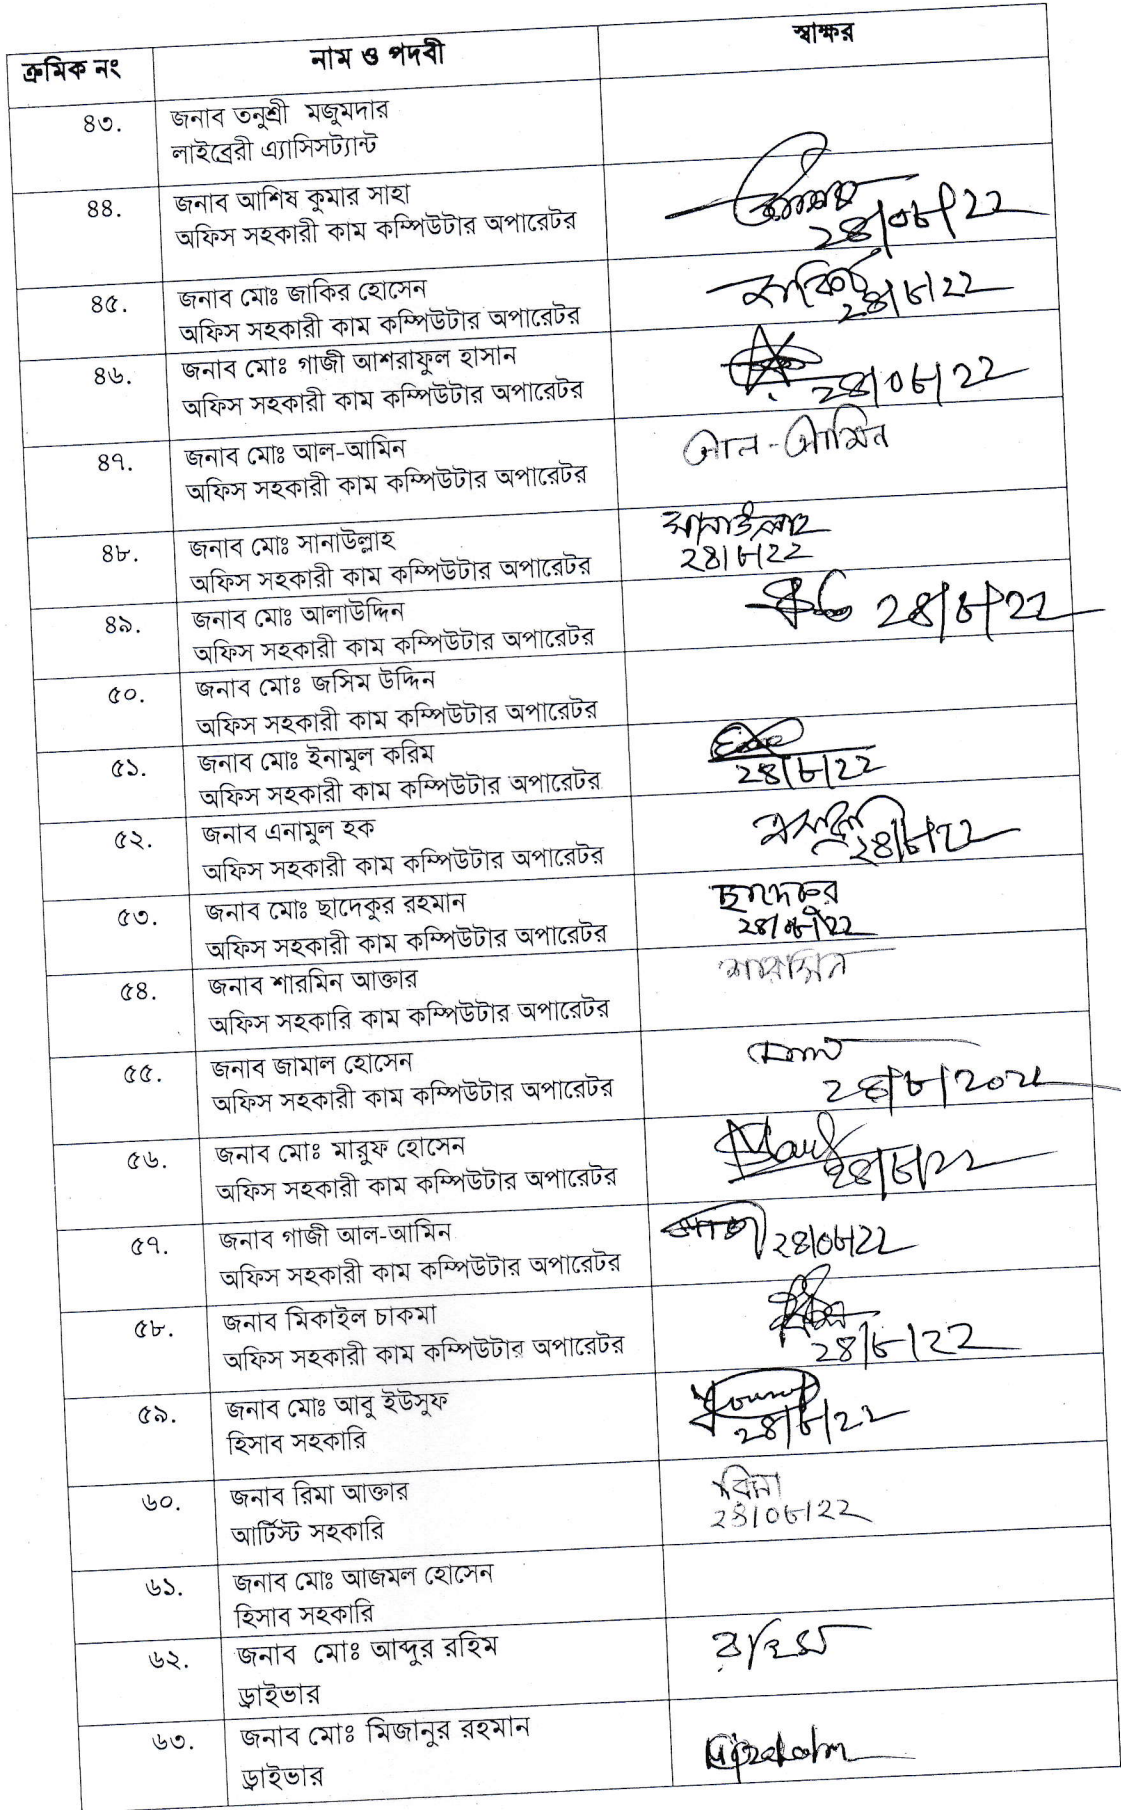 ক্রমিক নং নাম ও পদবী স্বাক্ষর
৪৩. জনাব তনুশ্রী মজুমদার
লাইব্রেরী এ্যাসিসট্যান্ট
৪৪. জনাব আশিষ কুমার সাহা
অফিস সহকারী কাম কম্পিউটার অপারেটর
২৪/০৮/২২
৪৫. জনাব মোঃ জাকির হোসেন
অফিস সহকারী কাম কম্পিউটার অপারেটর
২৪/৮/২২
৪৬. জনাব মোঃ গাজী আশরাফুল হাসান
অফিস সহকারী কাম কম্পিউটার অপারেটর
২৪/০৮/২২
৪৭. জনাব মোঃ আল-আমিন আল-আমিন
অফিস সহকারী কাম কম্পিউটার অপারেটর
৪৮. জনাব মোঃ সানাউল্লাহ সানাউল্লাহ
অফিস সহকারী কাম কম্পিউটার অপারেটর ২৪/৮/২২
৪৯. জনাব মোঃ আলাউদ্দিন ২৪/৮/২২
অফিস সহকারী কাম কম্পিউটার অপারেটর
৫০. জনাব মোঃ জসিম উদ্দিন
অফিস সহকারী কাম কম্পিউটার অপারেটর
৫১. জনাব মোঃ ইনামুল করিম
অফিস সহকারী কাম কম্পিউটার অপারেটর ২৪/৮/২২
৫২. জনাব এনামুল হক
অফিস সহকারী কাম কম্পিউটার অপারেটর ২৪/৮/২২
৫৩. জনাব মোঃ ছাদেকুর রহমান ছাদেকুর
অফিস সহকারী কাম কম্পিউটার অপারেটর ২৪/০৮/২২
৫৪. জনাব শারমিন আক্তার শারমিন
অফিস সহকারি কাম কম্পিউটার অপারেটর
৫৫. জনাব জামাল হোসেন
অফিস সহকারী কাম কম্পিউটার অপারেটর ২৪/৮/২০২২
৫৬. জনাব মোঃ মারুফ হোসেন
অফিস সহকারী কাম কম্পিউটার অপারেটর ২৪/৮/২২
৫৭. জনাব গাজী আল-আমিন ২৪/০৮/২২
অফিস সহকারী কাম কম্পিউটার অপারেটর
৫৮. জনাব মিকাইল চাকমা
অফিস সহকারী কাম কম্পিউটার অপারেটর ২৪/৮/২২
৫৯. জনাব মোঃ আবু ইউসুফ
হিসাব সহকারি ২৪/৮/২২
৬০. জনাব রিমা আক্তার রিমা
আর্টিস্ট সহকারি ২৪/০৮/২২
৬১. জনাব মোঃ আজমল হোসেন
হিসাব সহকারি
৬২. জনাব মোঃ আব্দুর রহিম রহিম
ড্রাইভার
৬৩. জনাব মোঃ মিজানুর রহমান
ড্রাইভার